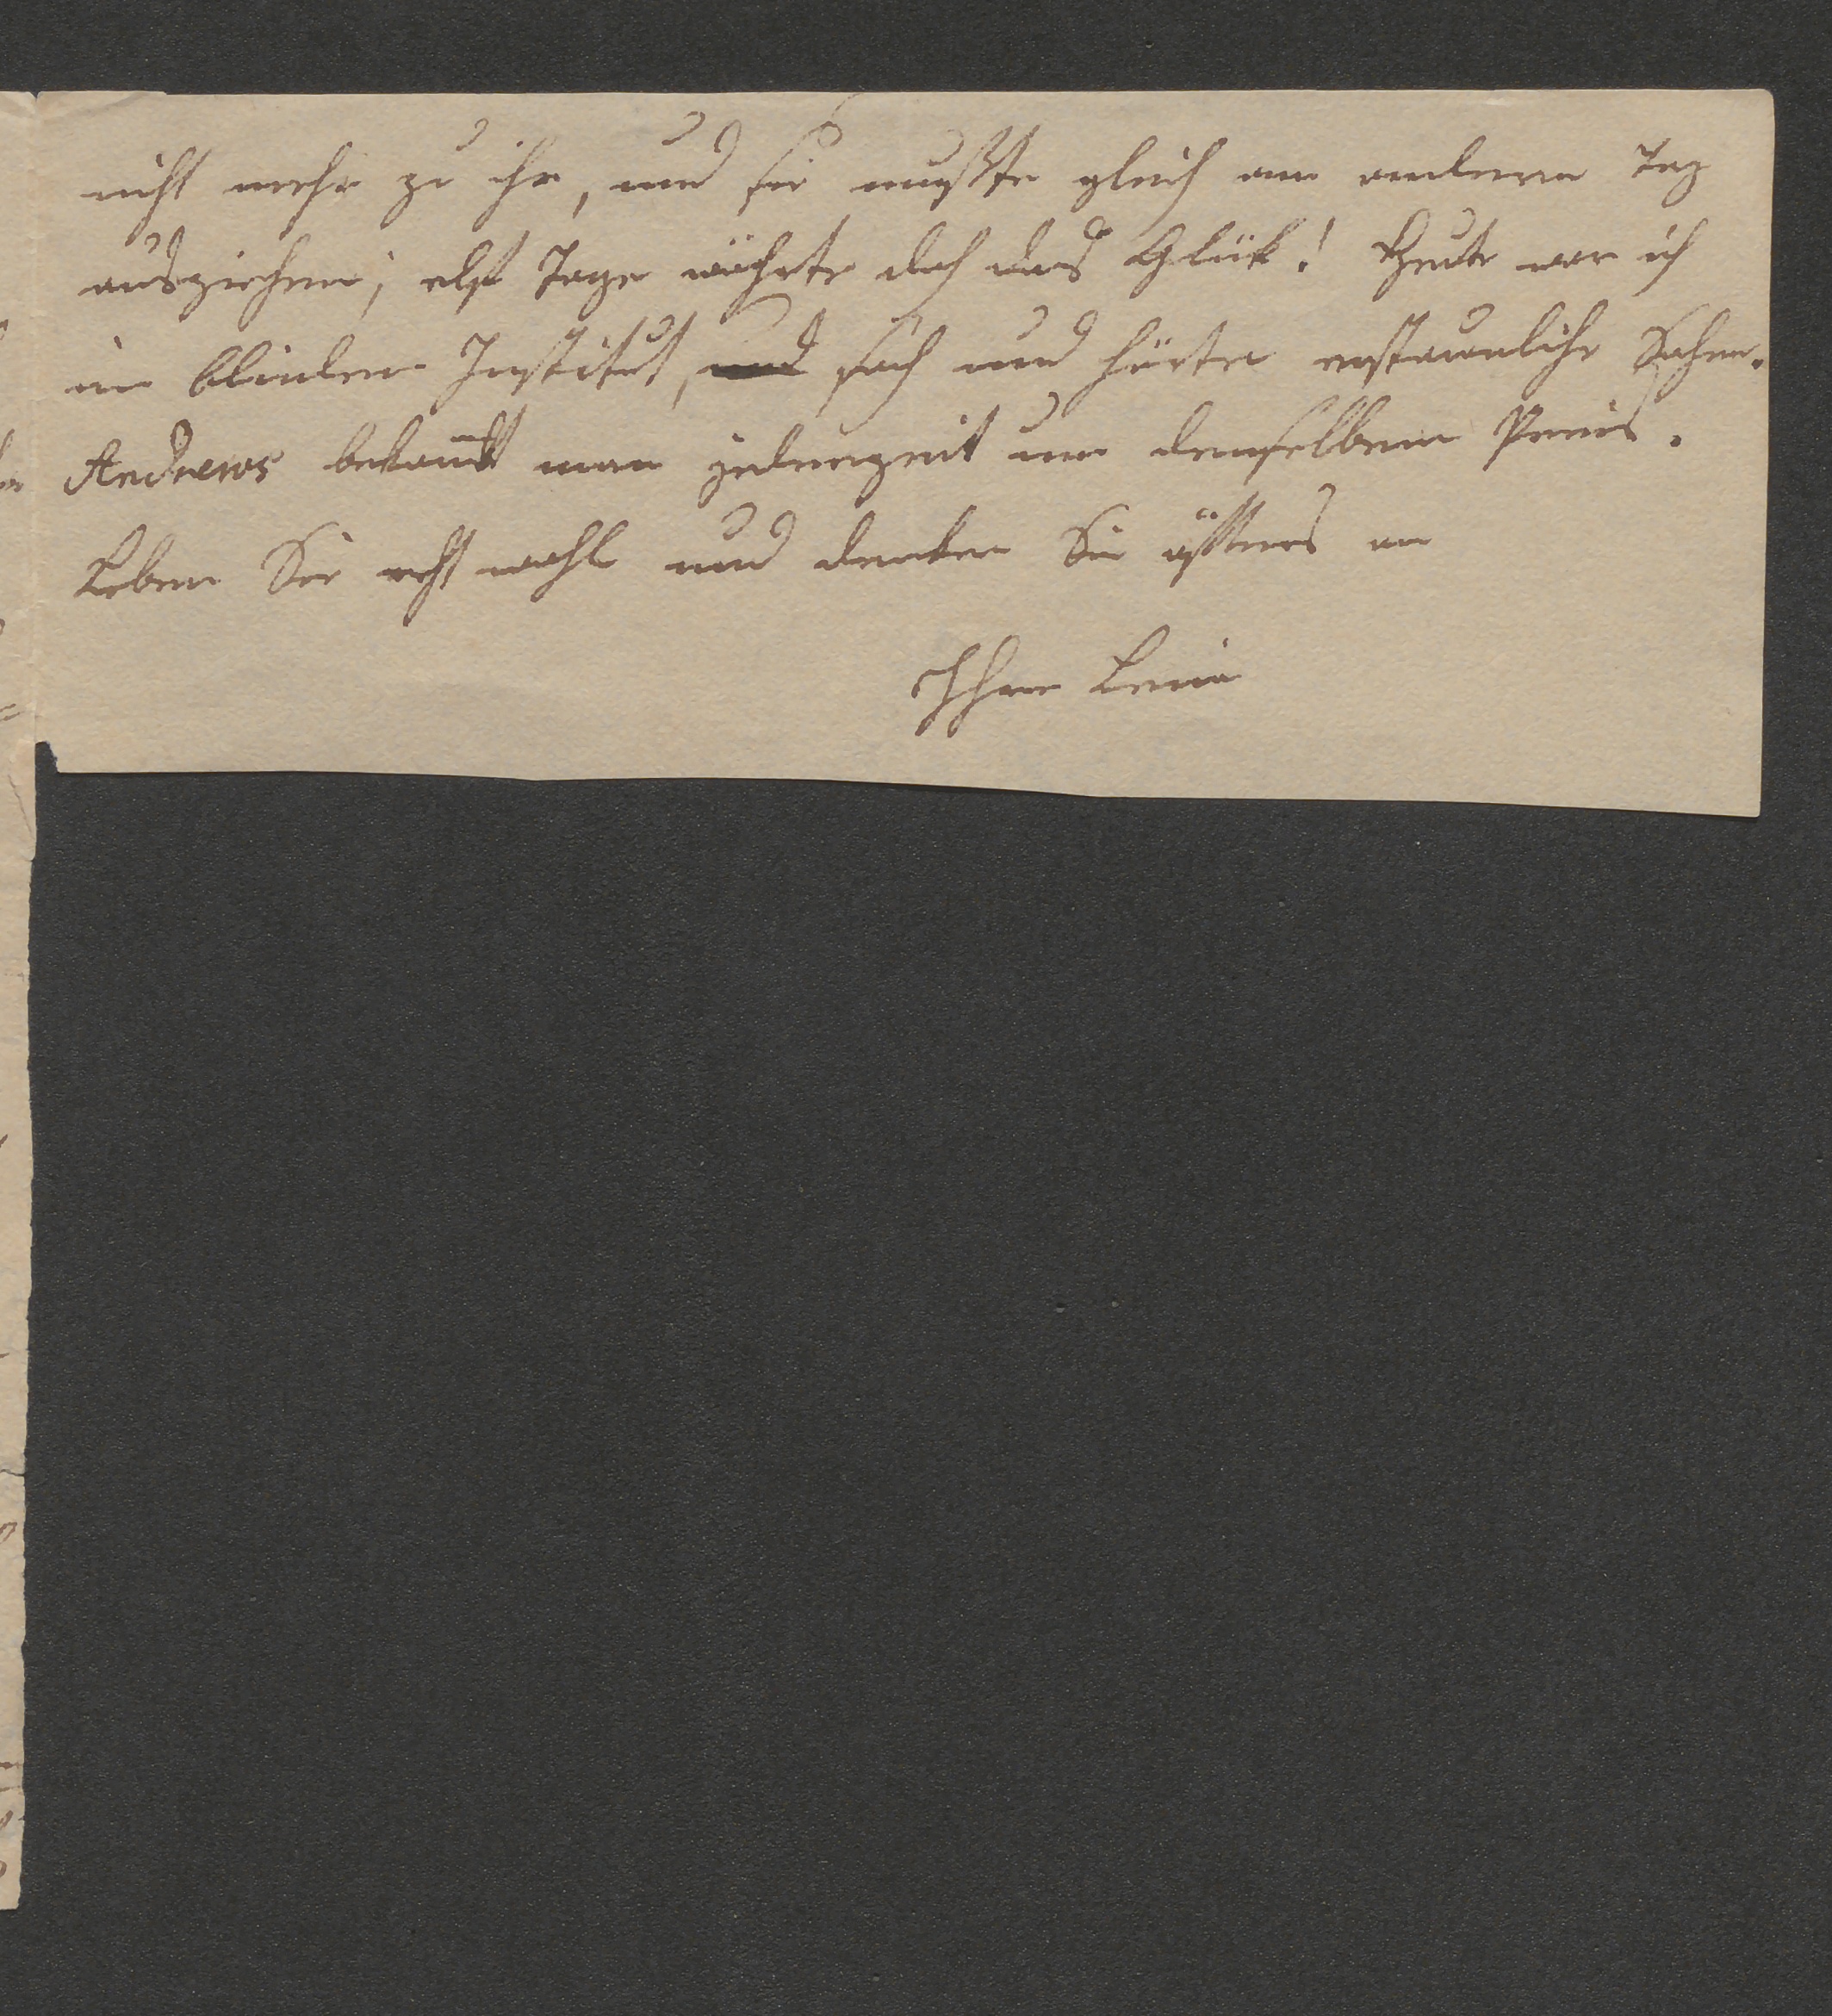 nicht mehr zu ihr, und sie mußte gleich am andern Tag
ausziehen; elf Tage währte doch das Glük! Heute war ich
im blinden Institut, und sah und hörte erstaunliche Sachen.
Andrews bekomt man jederzeit um denselben Preis.
Leben Sie recht wohl und denken Sie öfters an
Ihre